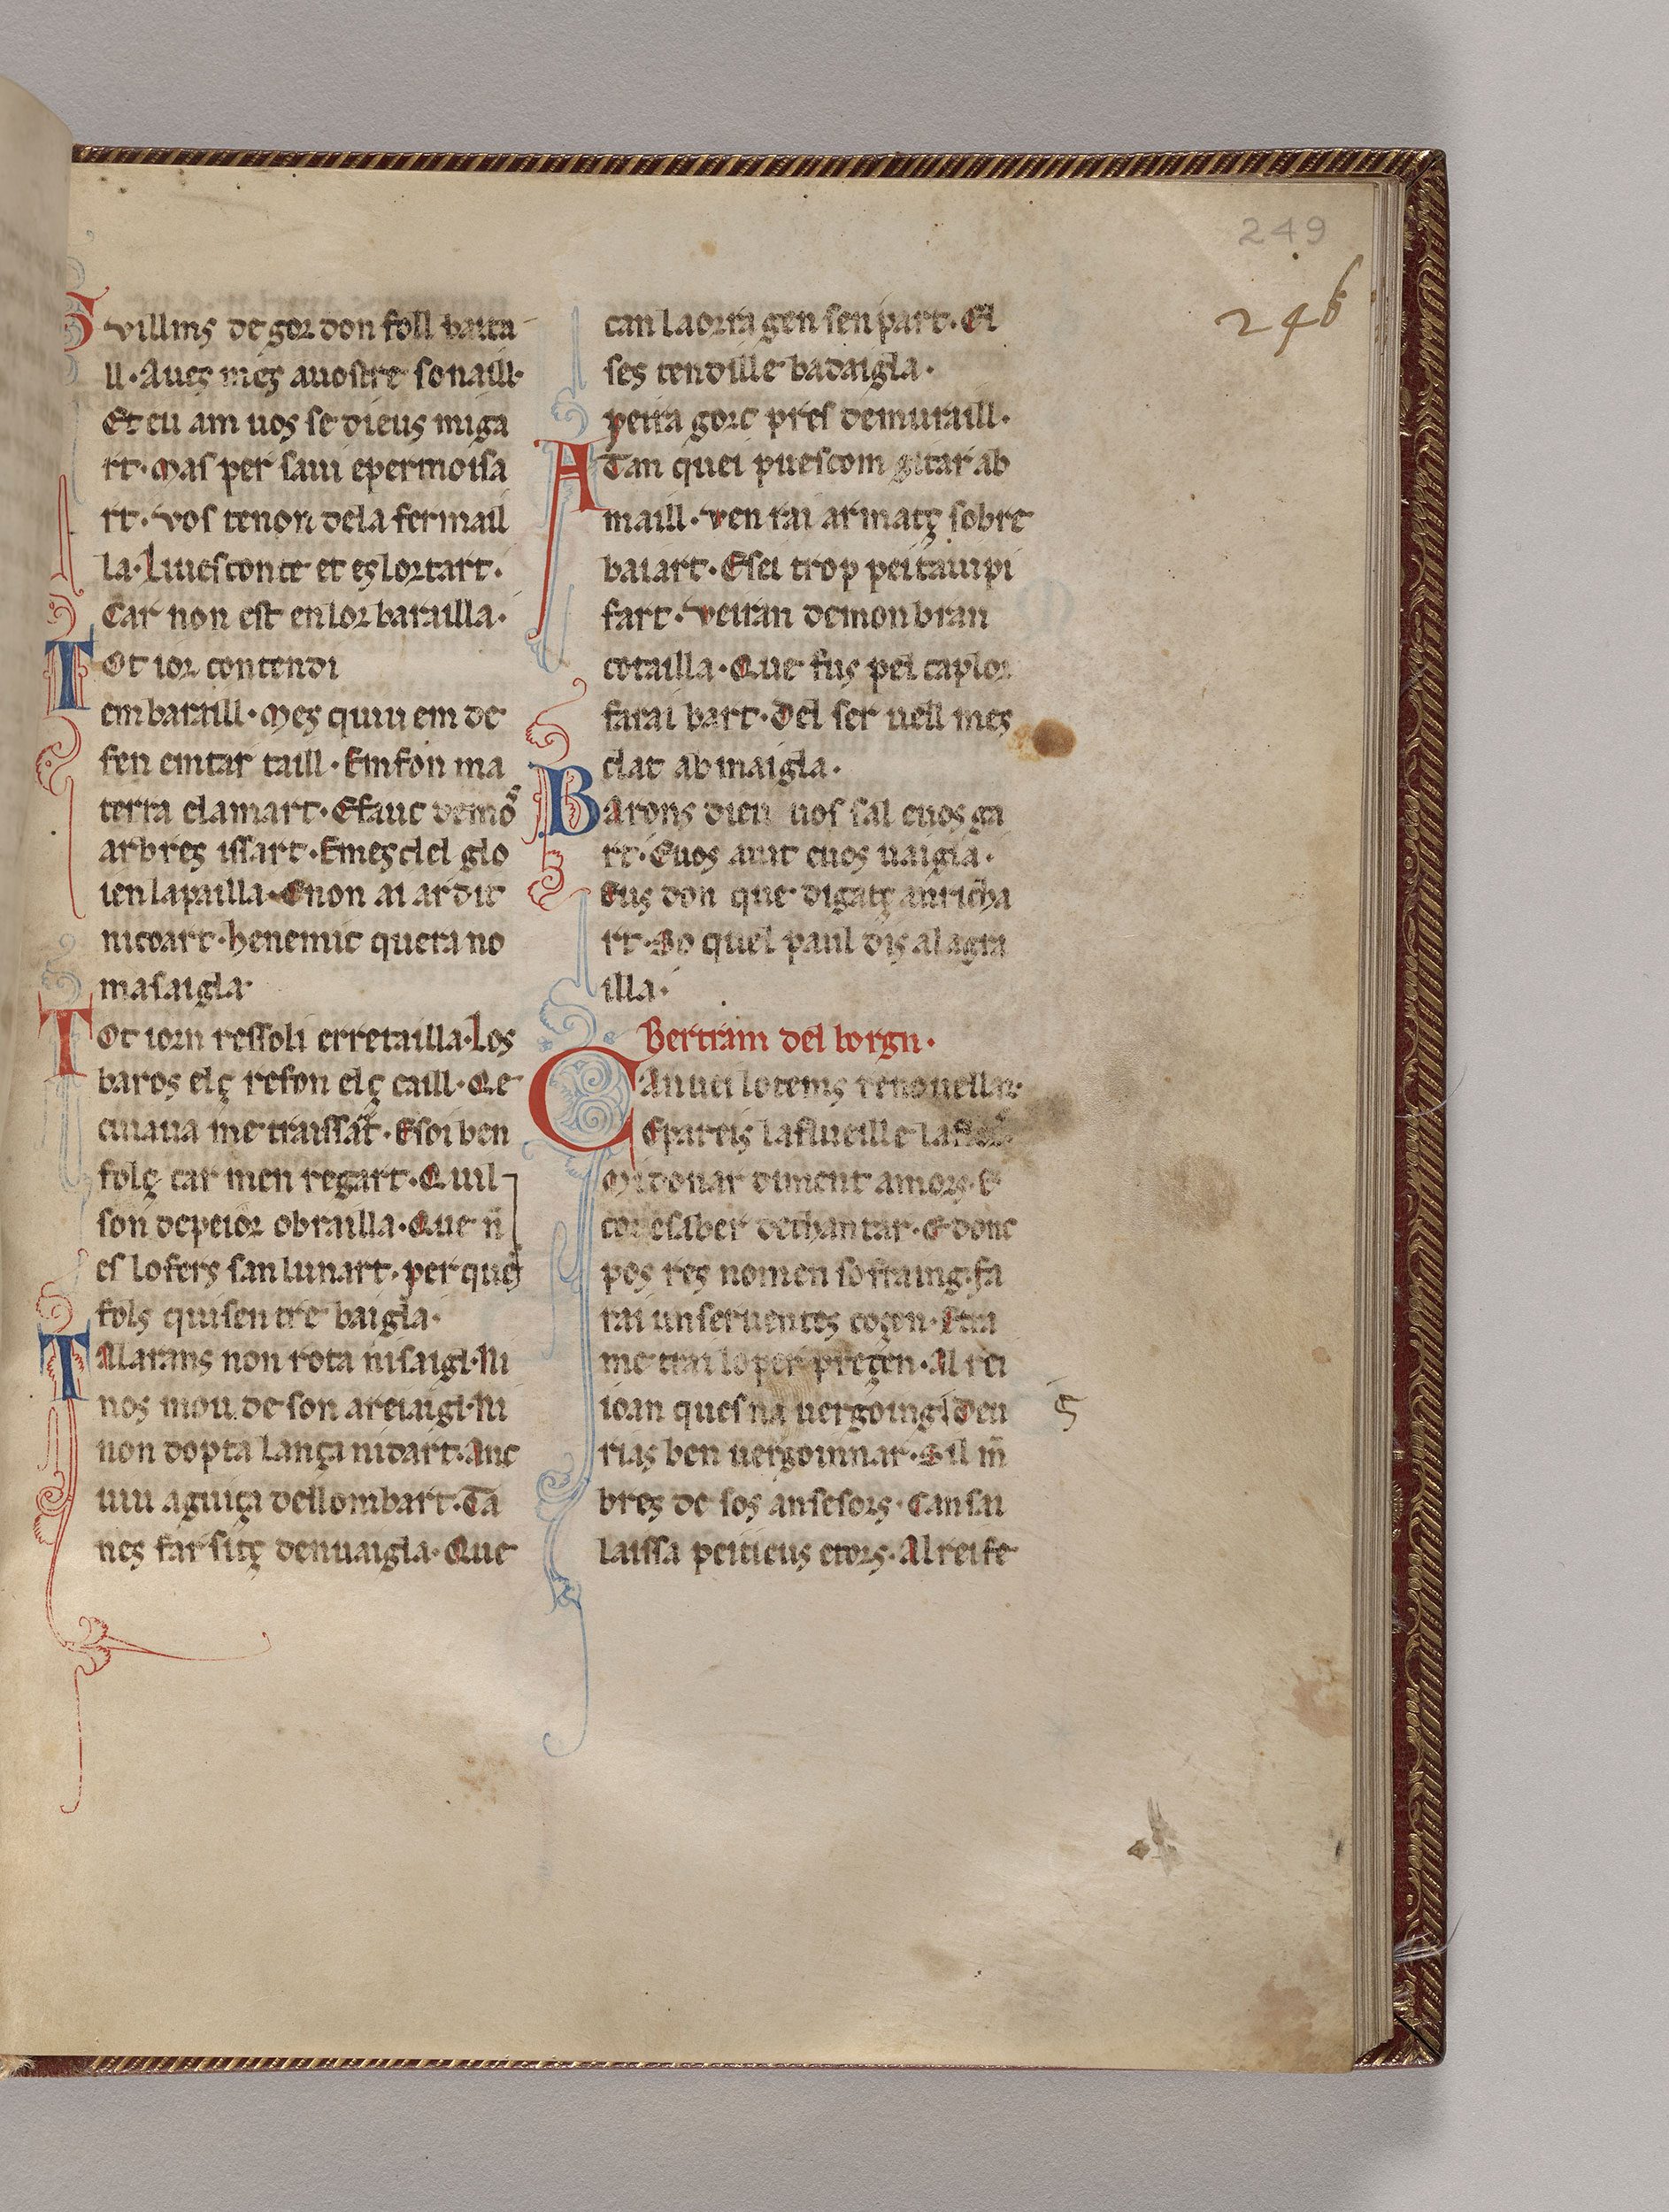 249
246
Guillms de gordon foll bata
ll· Aueç meç auostre sonaill·
Et eu am uos se dieus miga
rt· Mas per saui epermoisa
rt· Vos tenon dela fermail
la· Luesconte et eslortart·
Car non est en lor batailla·
Tot ior contendi
em baraill· Mes quiu em de
fen emtar taill· Em fon ma
terra elamart· E fauc demos
arbres issart· E mesclel glo
ien lapailla· E non ai ardit
nicoart· henemic quera no
masaigla
Tot iorn ressoli erretailla· Los
baros elç refon elç caill· Qe
cuiaua me traissart· E soi ben
folç car men regart· Quil
son depeior obrailla· Que n̄
es lofers san lunart· per ques
fols quisen tre baigla·
Talarans non rota nisaigl· Ni
nos mou de son areiaigl· Ni
non dopta lança nidart· Anc
uiu aguiça dellombart· Ta
nes farsitç denuaigla· Que
can laorra gen sen part· El
ses tendille badaigla·
peira gorc pres demuraill·
A Tan quei puescom gitar ab
maill· Ven rai armatç sobre
baiart· E sei trop peitauipi
fart· Veiran demon bran
cotailla· Que sus pel caplor
farai bart· Del fer uell mes
clat ab maigla·
Barons dieu uos sal euos ga
rt· Euos aiut euos uaigla·
Eus don que digatç anricha
rt· So quel paul dis alagra
illa·
Bertram del borgn·
Can uei lotems renouellar·
E pareis la flueille la flors
Mi donar diment amors· E
cor esaber dechantar· E donc
pos res nomen sofraing· fa
rai un seruentes cogen· Etra
metrai lo per preçen· Al rei
ioan ques na uergoing· Deu
rias ben uergoinnar· Sil m̄
bres de sos ansesors· Can sai
laissa peitieus etors· Al rei fe
5